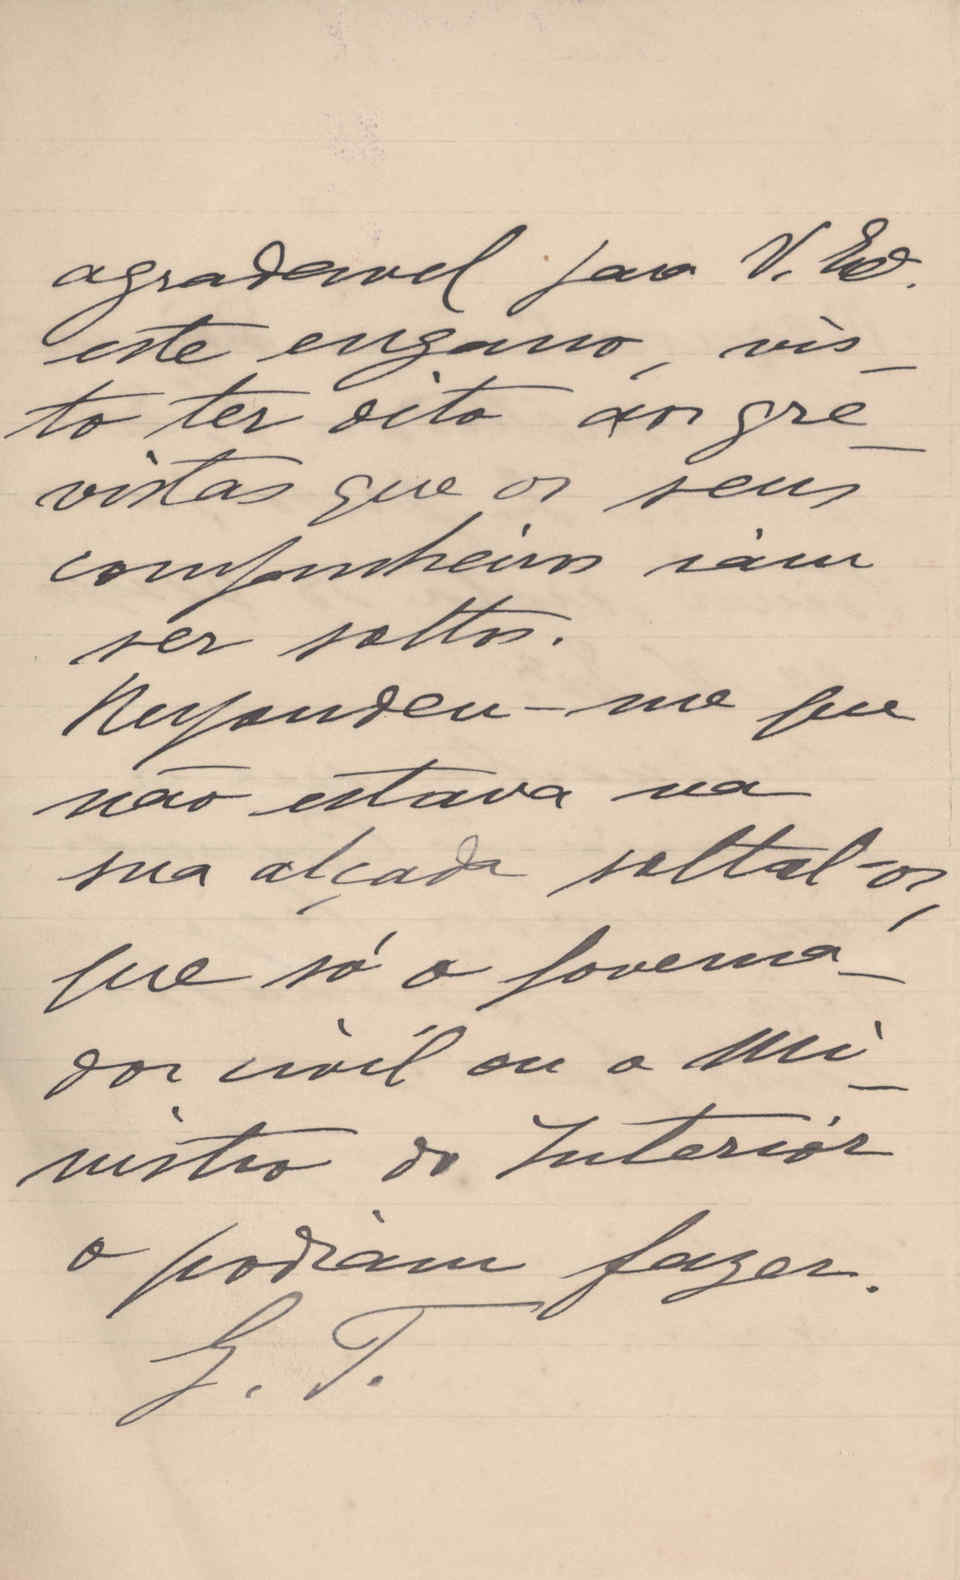 agradavel para V. Exª.
este engano, vis-
to ter dito aos gre-
vistas que os seus
companheiros iam
ser soltos.
Respondeu-me que
não estava na
sua alçada soltal-os,
que só o governa-
dor civil ou o Mi-
nistro do Interior
o podiam fazer.
G. T.